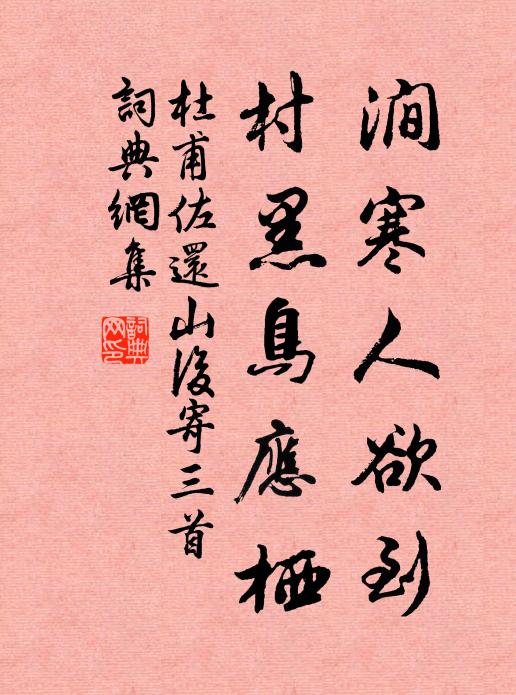 澗寒人欲到
村黑鳥應栖
杜甫佐還山後寄三首
詞典網集
詞典網印